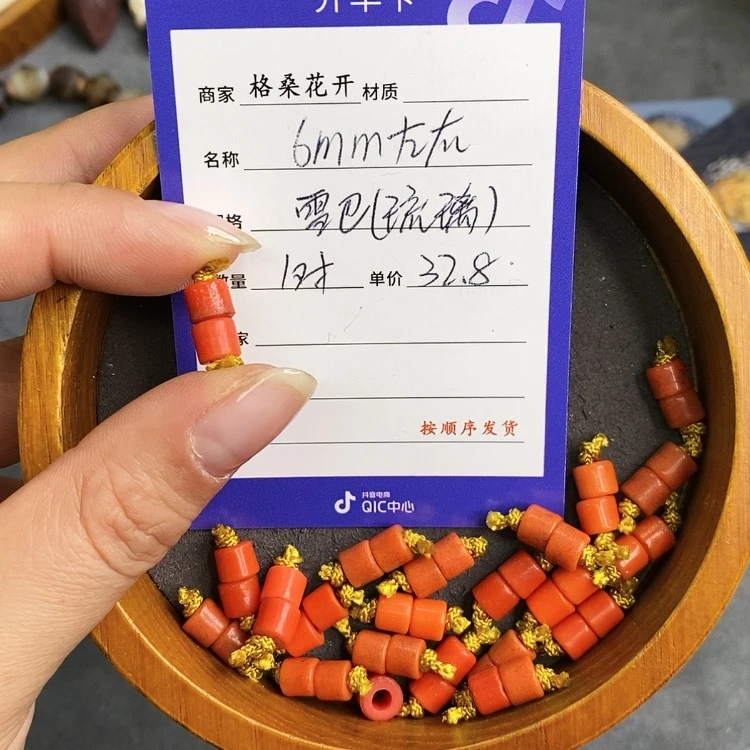 开单卡
商家 格桑花开 材质
名称 6mm左右
规格 雪巴(琉璃)
数量 1对 单价 32.8
家
按顺序发货
抖音电商
QIC中心